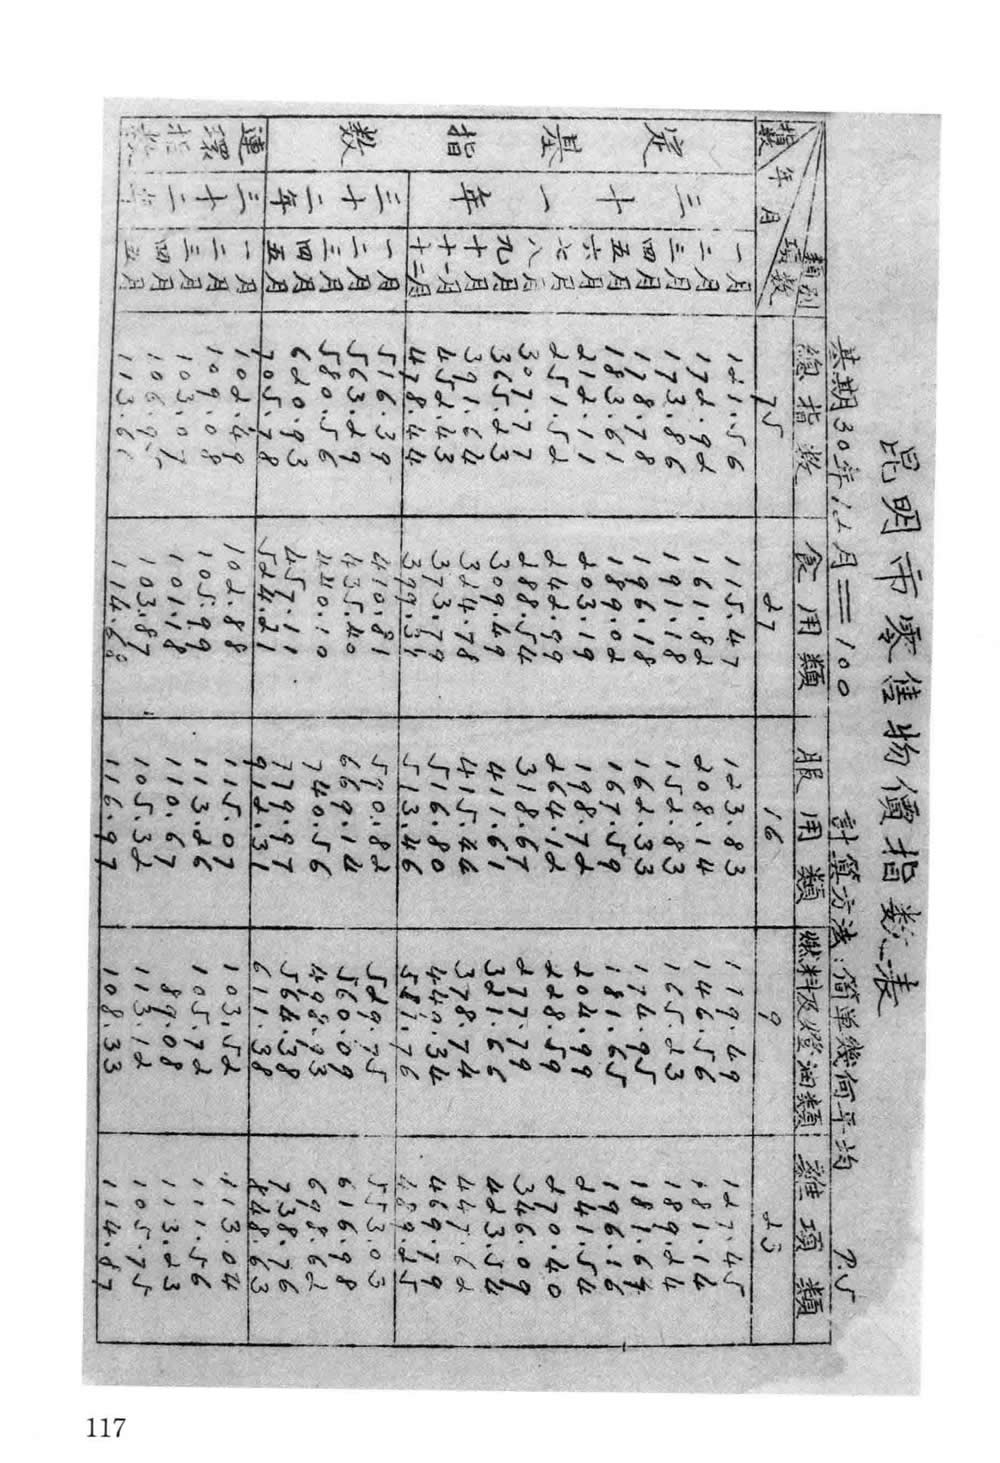 昆明市零售物價指數表
基期30年12月=100 計算方法:簡單幾何平均 P.5
類別 總指數 食用類 服用類 燃料及燈油類 雜項類
項數 75 27 16 9 23
年月
指數
定基指數
三十一年
一月 121.56 115.47 123.83 119.49 127.45
二月 172.92 161.82 208.14 146.56 181.14
三月 173.86 191.18 152.83 165.23 189.24
四月 178.78 196.18 162.33 174.95 181.67
五月 183.61 189.02 167.59 181.65 196.16
六月 212.11 203.19 198.72 204.99 241.54
七月 251.52 242.99 264.12 228.59 270.40
八月 307.77 288.54 318.67 277.79 346.09
九月 365.23 309.49 411.61 321.66 423.54
十月 391.64 324.78 415.44 378.74 447.62
十一月 452.43 373.79 516.80 440.34 469.79
十二月 478.44 399.34 513.46 587.76 469.25
三十二年
一月 516.39 410.81 590.82 529.75 553.03
二月 563.29 435.40 669.14 560.09 616.98
三月 580.56 440.10 740.56 498.93 698.62
四月 620.93 457.11 779.97 564.38 738.76
五月 705.78 524.21 912.31 611.38 848.63
連環指數
三十二年
一月 102.49 102.88 115.07 103.52 113.04
二月 109.08 105.99 113.26 105.72 111.56
三月 103.07 101.18 110.67 89.08 113.23
四月 106.95 103.87 105.32 113.12 105.75
五月 113.66 114.68 116.97 108.33 114.87
117